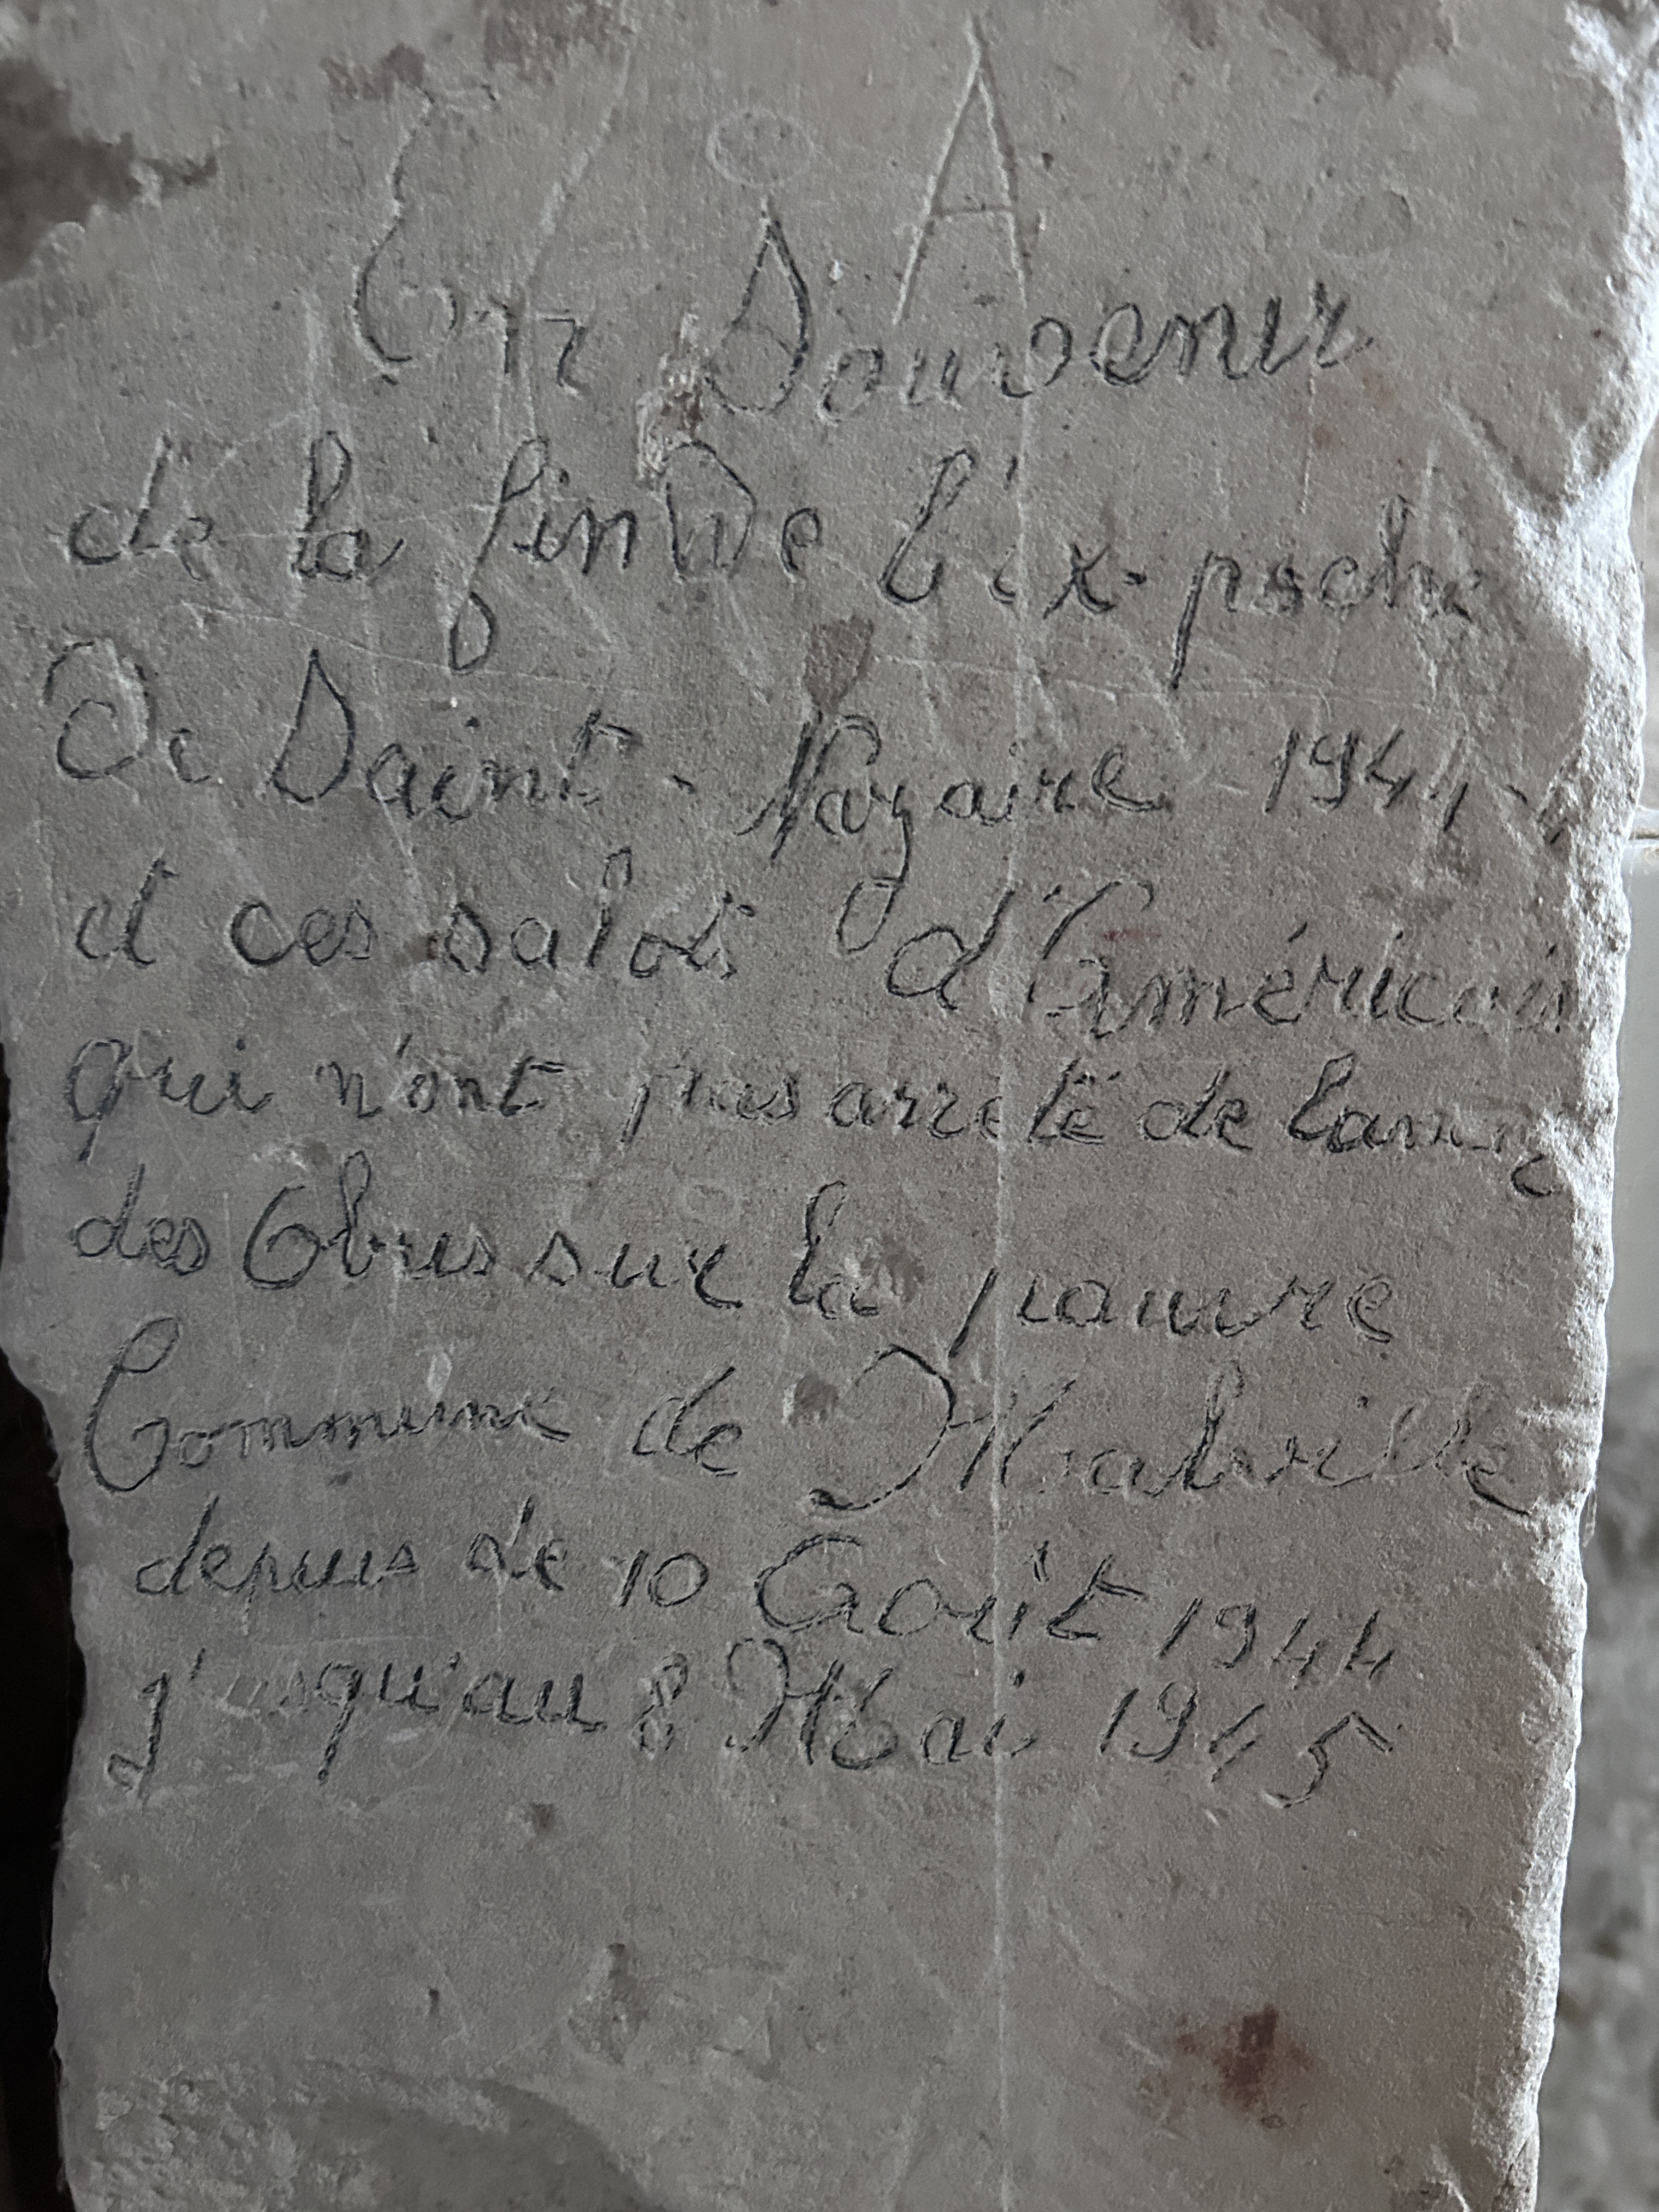 A
En Souvenir
de la fin de l'ix-poche
De Saint-Nazaire 1944-4
et ces salots d'Américais
qui n'ont pas arreté de lancé
des Obus sur la pauvre
Commune de Malville
depuis le 10 Août 1944
j'usqu'au 8 Mai 1945